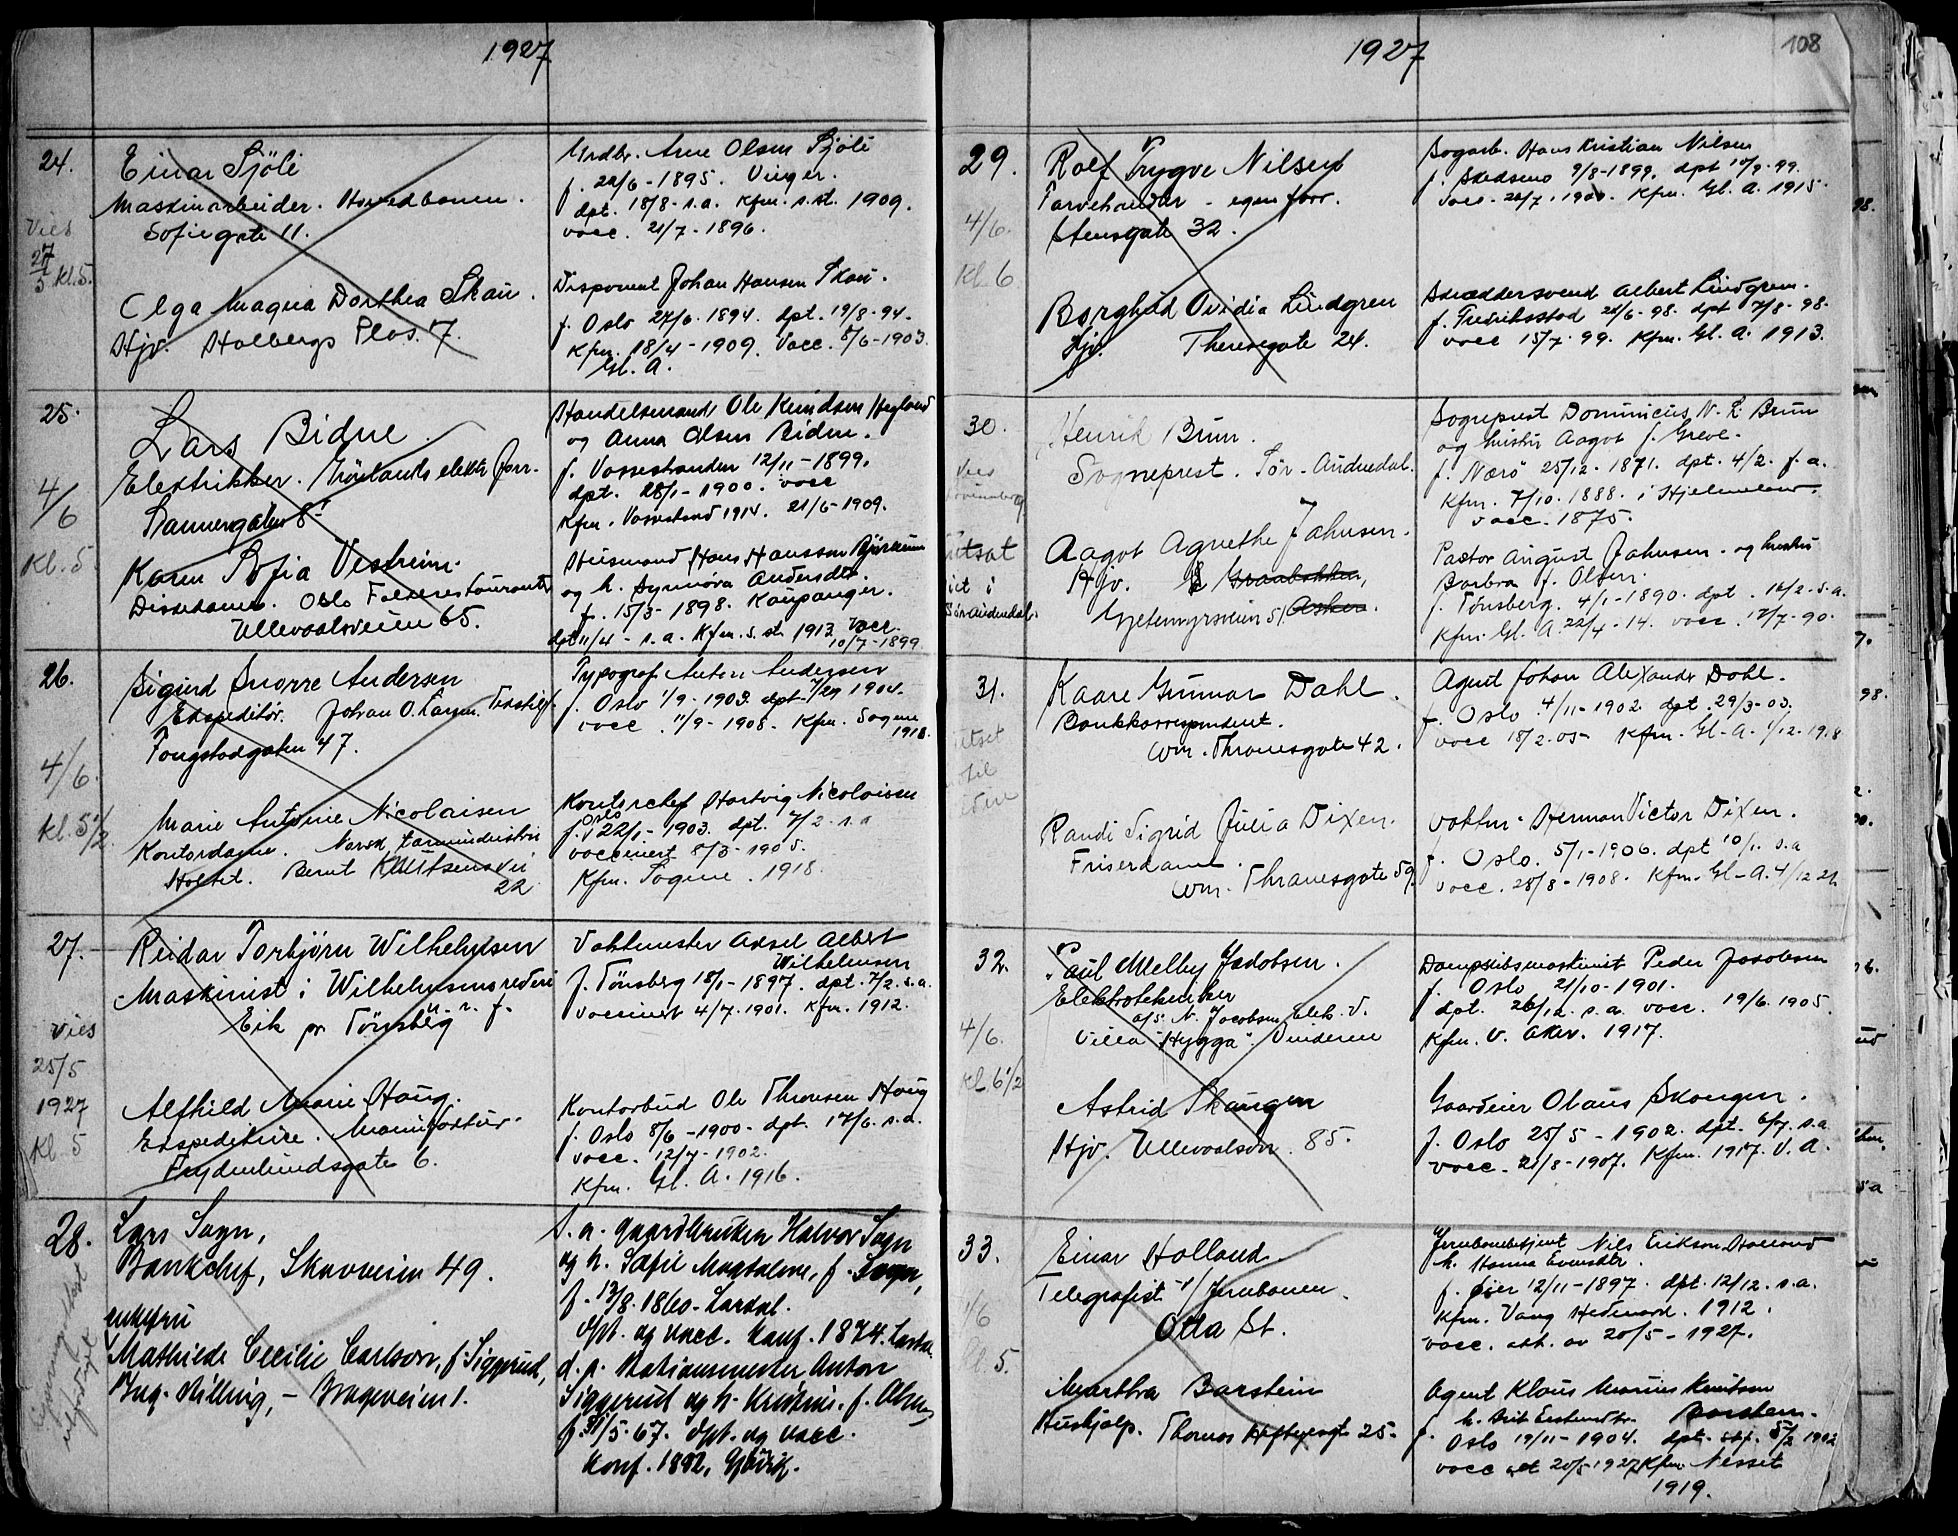 1927
24.
Vies
27/5 Kl. 5.
Einar Sjöli
Maskinarbeider. Hovedbanen.
Sofiegate 11.
Grdbr. Arne Olsen Sjöli
f. 22/6 - 1895. Vinger.
dpt. 18/8 - s.a. Kfm. s.st. 1909.
vacc. 21/7 - 1896.
Olga Magna Dorthea Skau.
Hjv. Holbergs Plas. 7.
Disponent Johan Hansen Skau.
f. Oslo 27/6. 1894. dpt. 19/8 - 94.
Kfm. 18/4 - 1909. Vacc. 8/6 - 1903.
Gl. A.
25.
4/6
Kl. 5
Lars Bidne.
Elektrikker. Grönlands elektr. forr.
Sannergaten 8
Handelsmand Ole Knudsen Hegland
og Anna Olsen Bidne.
f. Vossestranden 12/11 - 1899.
dpt. 28/1 - 1900. vacc
Kfm. Vossestrand 1914. 21/6 - 1909.
Karen Sofia Vestrheim.
Dissedame. Oslo Folkerestauranter
Ullevoalsveien 65.
Husmand Hans Hansson
og h. Synnöva Andersdtr.
f. 15/3 - 1898. Kaupanger.
dpt 11/4 - s.a. Kfm. s. st. 1913 vacc.
10/7 - 1899
26.
4/6.
Kl. 5 1/2
Sigurd Snorre Andersen
Ekspeditör. Johan O. Larsen.
Fougstadgaten 47.
Typograf Anton Andersen
f. Oslo 1/9 - 1903. dpt. 1904.
vacc. 11/9 - 1908. Kfm. Sogne
1918.
Marie Antonie Nicolaisen
Kontordame. Norsk tarmindustri
Holtet. Bernt Knutsensvei
22
Kontorchef Hartvig Nicolaisen
Oslo
f. 22/1 - 1903. dpt. 7/2 - s.a
vaccinert 8/3 - 1905.
Kfm. Sogne. 1918.
27.
Vies
25/5
1927
Kl. 5
Reidar Torbjörn Wilhelmsen
Maskinist i Wilhelmsens rederi
u. r. f.
Eik pr Tönsberg
Vaktmester Aksel Albert
Wilhelmsen
f. Tönsberg 18/1 - 1897. dpt. 7/2. s.a.
vaccinert 4/7. 1901. Kfm. 1912.
Alfhild Marie Haug.
Ekspeditrice. Manufaktur.
Frydenlundsgate 6.
Kontorbud Ole Thronsen Haug
f. Oslo 8/6 - 1900 - dpt. 17/6. s.a.
vacc. 12/7 - 1902.
Kfm. Gl. A. 1916.
28.
Lars Sogn,
Bankchef, Skovveien 49.
S. a. gaardbruker Halvor Sogn
og h. Sofie Magdalene, f. Sogn,
f. 13/8. 1860 - Lardal.
dpt. og vacc. konf. 1874.
enkefru
Mathilde Cecilie Carlson, f. Siggerud,
- Brageveien 1.
d. a. Stationsmester Anton
Siggerud og h. Kristine, f. Olsen,
f. 31/5. 67. dpt. og vacc.
konf. 1882, Gjövik.
1927
108
29.
4/6.
Kl. 6
Rolf Trygve Nilsen
Farvehandler - egen forr.
Stensgate 32.
Bogarb. Hans Kristian Nilsen
f. Skedsmo 9/8 - 1899. dpt 10/9. 99.
vacc. 22/7. 1900. Kfm. Gl. A. 1915.
Borghild Ovidia Lindgren
Hjv. Theresegate 24.
Skræddersvend Albert Lindgren.
f. Fredriksstad 26/6 - 98. dpt 7/8 - 98.
vacc 15/7. 99. Kfm. Gl. A. 1913.
30.
Utsat
Henrik Brun.
Sogneprest. Sör-Audnedal.
Sogneprest Dominicus N. S. Brun
og hustru Aagot f. Greve.
f. Nærö 25/12. 1871. dpt. 4/2. f. a.
Kfm. 7/10. 1888. i Hjelmeland.
vacc. 1875.
Aagot Agnethe Jahnsen.
Hjv. Granbakken,
Gjetemyrsveien 51. Asker.
Pastor August Jahnsen. og hustru
Barbra f. Olsen.
f. Tönsberg. 4/1 - 1890. dpt. 16/2. s.a.
Kfm. Gl. A. 22/4 - 14. vacc. 12/7 - 90.
31.
Kaare Gunnar Dahl.
Bankkorrespondent.
Wm. Thranesgate 42.
Agent Johan Alexander Dahl.
f. Oslo 4/11 - 1902. dpt. 29/3 - 03.
vacc 18/2. 05 - Kfm. Gl - A. 1/12. 1918
Randi Sigrid Julia Dixen.
Friserdame.
Wm. Thranesgate 59.
Vaktm. Herman Victor Dixen.
f. Oslo. 5/1 - 1906. dpt 10/1. s.a
vacc. 28/8 - 1908. Kfm. Gl - A. 4/12 21.
32.
4/6.
Kl. 6 1/2
Paul Melby Jacobsen.
Elektrotekniker
a/s. N. Jacobsen elek. V.
Villa "Hygga". Vinderen
Dampskibsmaskinist Peder Jacobsen
f. Oslo 21/10 - 1901.
dpt. 26/12. s.a. vacc. 19/6. 1905.
Kfm. V. Aker. 1917.
Astrid Skaugen
Hjv. Ullevoalsvn. 85.
Gaardeier Olaus Skaugen.
f. Oslo 25/5 - 1902. dpt. 6/7. s.a.
vacc. 21/8 - 1907. Kfm. 1917. V. A.
33.
11/6
Kl. 5.
Einar Holland
Telegrafist v/ Jernbanen.
Otta St.
Jernbanebetjent Nils Erikson Holland
h. Hanna Evensdtr.
f. Öier 12/11 - 1897. dpt. 12/12. s.a.
Kfm. Vang Hedmark. 1912.
vacc. att. av 20/5 - 1927.
Martha Barstein
Hushjelp. Thomas Heftyesgt 25.
Agent Klaus Marius Knutsen
Barstein.
f. Oslo 19/11 - 1904. 1902
vacc att 20/5 1927 Kfm. Nesset
1919.